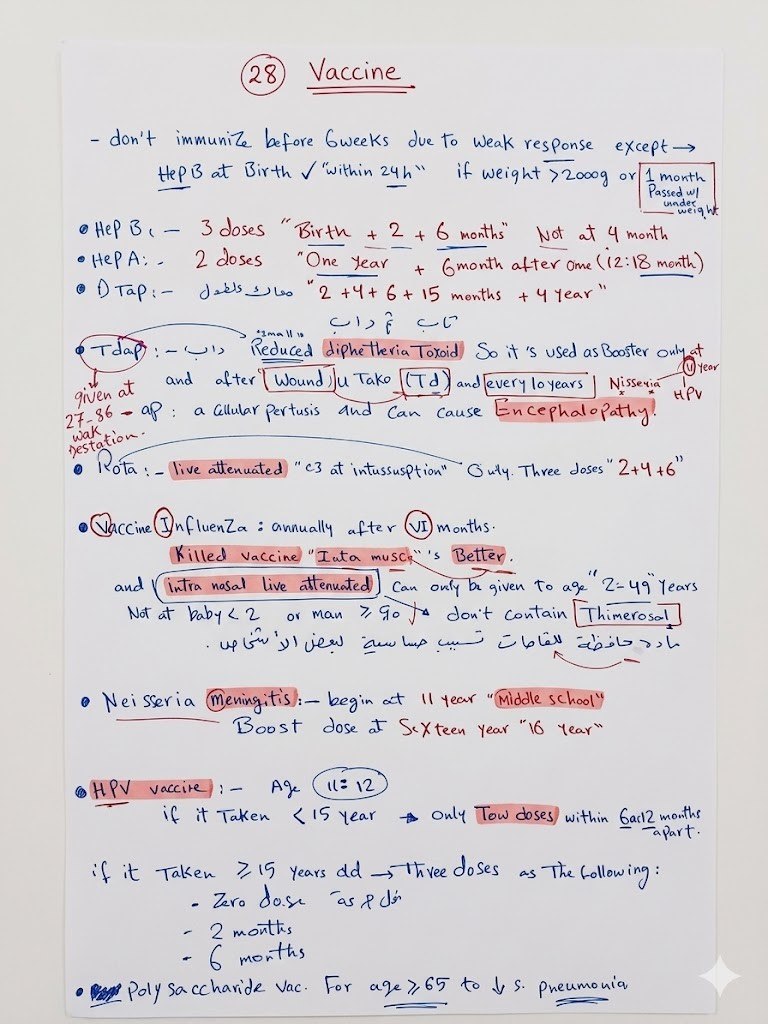 28 Vaccine
- don't immunize before 6weeks due to weak response except →
HepB at Birth ✓ "within 24h" if weight >2000g or 1 month
Passed w/
under
weight
• Hep B: - 3 doses "Birth + 2 + 6 months" Not at 4 month
• Hep A: - 2 doses "One year + 6month after ome (12:18 month)
• DTap: - "2 + 4 + 6 + 15 months + 4 year"
تاب داب
"small"
• Tdap: - داب Reduced diphetheria Toxoid So it's used as Booster only at 11 year
and after Wound u Take (Td) and every 10 years Nisseria HPV
given at
27-36
wak
Destation.
ap: a Cellular pertusis and Can cause Encephalopathy!
• Rota: - live attenuated "c3 at intussusption" Only. Three doses "2+4+6"
• Vaccine InfluenZa: annually after VI months.
Killed vaccine "Inta musc" 's Better.
and intra nasal live attenuated Can only be given to age "2=49" Years
Not at baby < 2 or man ≥ 50 don't contain Thimerosal
مادة حافظة للقاحات تسبب حساسية لبعض الأشخاص.
• Neisseria meningitis: - begin at 11 year "Middle school"
Boost dose at Sexteen year "16 year"
• HPV vaccine: - Age 11=12
if it Taken < 15 year → only Tow doses within 6 12 months
apart.
if it Taken ≥ 15 years old → Three doses as The following:
- Zero dose
- 2 months
- 6 months
• Poly saccharide vac. For age ≥65 to ↓ s. pneumonia